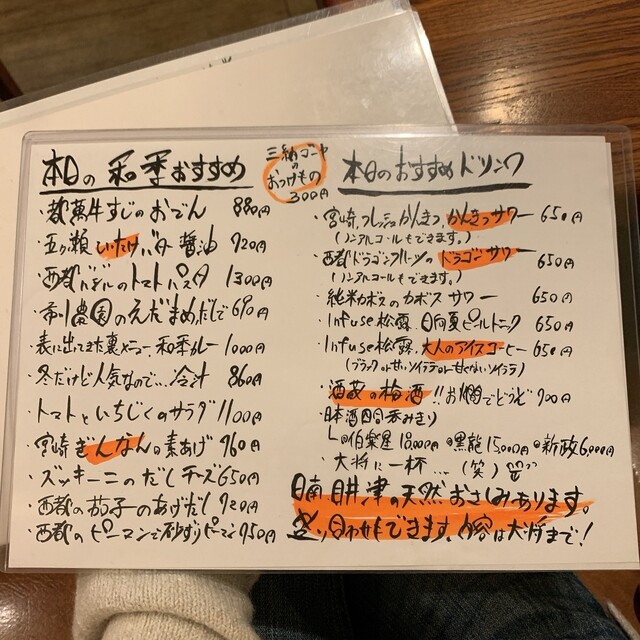 本日の 和季おすすめ
・都萬牛すじのおでん 880円
・五ヶ瀬しいたけバター醤油 720円
・西都バジルのトマトパスタ 1300円
農園のえだまめだしで 690円
・表に出てきた裏メニュー 和季カレー 1000円
・冬だけど人気なので… 冷汁 860円
・トマトといちじくのサラダ 1100円
・宮崎ぎんなんの素あげ 760円
・ズッキーニのだしチーズ 650円
・西都の茄子のあげだし 720円
・西都のピーマンで砂ずりピーマン 750円
三納ゴーヤ
の
おつけもの
300円
本日のおすすめドリンク
・宮崎、フレッシュかんきつ、かんきつサワー 650円
(ノンアルコールもできます。)
・西都ドラゴンフルーツの ドラゴンサワー 650円
(ノンアルコールもできます。)
・純米カボスのカボスサワー 650円
・Infuse松露、日向夏ピールトニック 650円
・Infuse松露、大人のアイスコーヒー 650円
(ブラック or 甘いソイラテ or 甘くないソイラテ)
・酒蔵の梅酒!!お燗でどうぞ 700円
・日本酒四合呑みきり
└@伯楽星 18,000円 @黒龍 15,000円 @新政 6,000円
・大将に一杯… (笑)
日南 目井津の天然おさしみあります。
盛り合わせもできます。内容は大将まで!